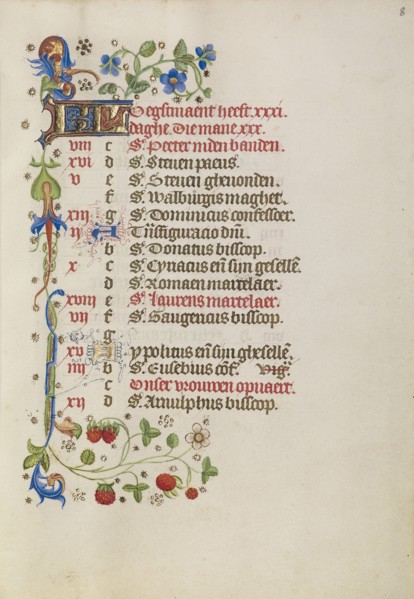 8
KL Oegstmaent heeft .xxxi.
daghe. Die mane .xxx.
viii c S. Peeter inden banden.
xvi d S. Steven paeus.
v e S. Steven ghevonden.
f S. Walburgis maghet.
xiii g S. Dominicus confessoer.
ii A Tnsfiguracio dnī.
b S. Donatus bisscop.
x c S. Cyriacus eñ sijn gesellē.
d S. Romaen martelaer.
xviii e S. Laurens martelaer.
vii f S. Gaugericus bisscop.
g
xv A ypolitus eñ sijn ghesellē.
iiii b S. Eusebius cōf. Vigł.
c Onser vrouwen opvaert.
xii d S. Arnulphus bisscop.